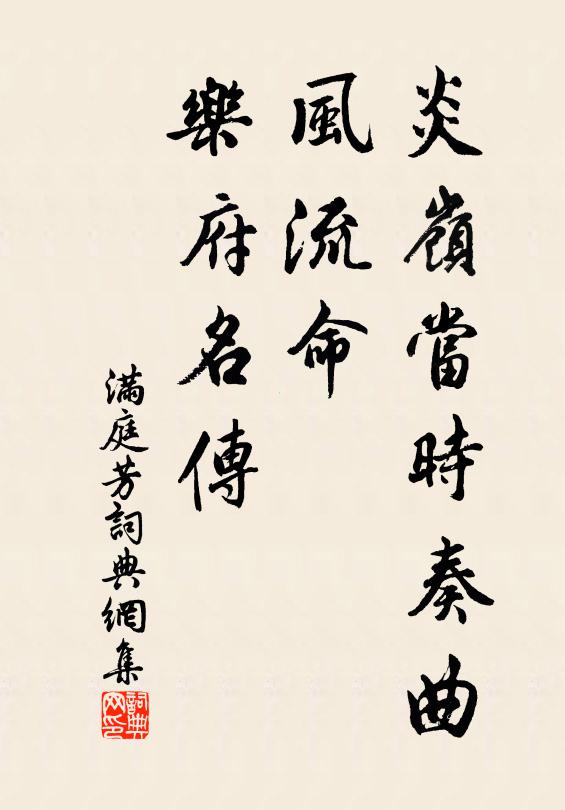 炎嶺當時奏曲
風流命
樂府名傳
滿庭芳詞典網集
詞典网印